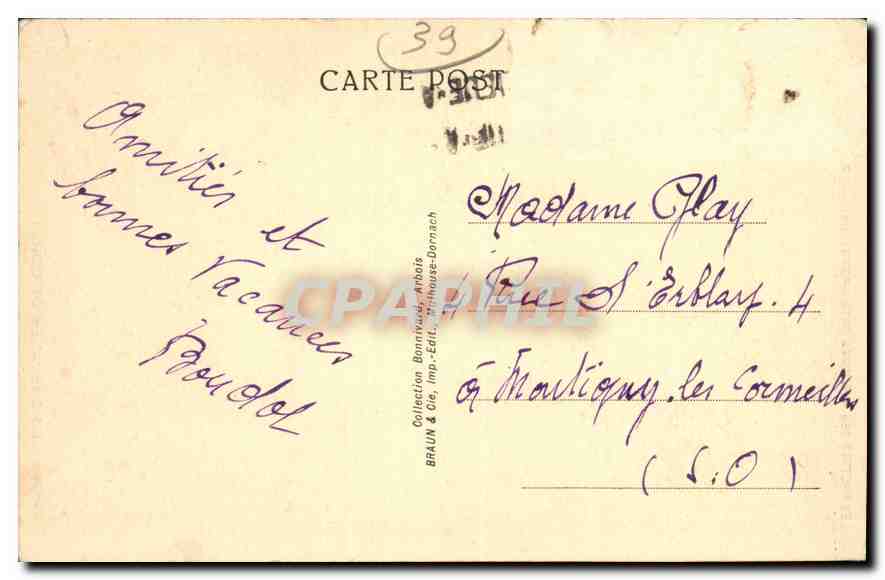 39
CARTE POST
Amitiés et
bonnes Vacances
Boudot
Collection Bonnivard, Arbois
BRAUN & Cie, Imp.-Edit., Mulhouse-Dornach
CPAPHIL
Madame Glay
4 Rue d'Erblay. 4
à Montigny. les Cormeilles
(S.O)